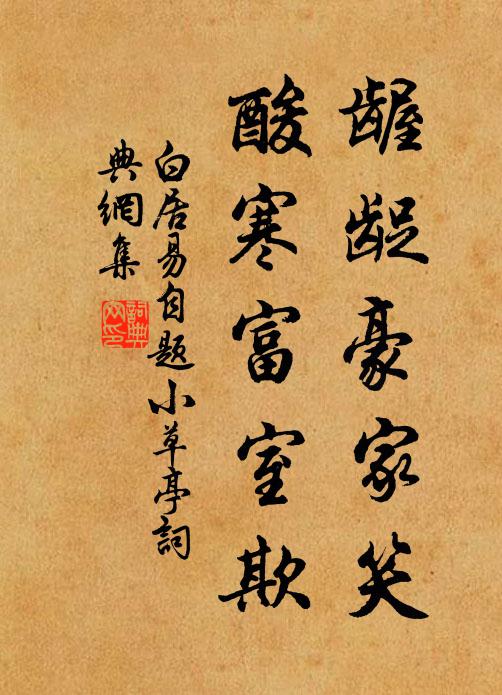 齷齪豪家笑
酸寒富室欺
白居易自題小草亭詞
典網集
詞典
网印